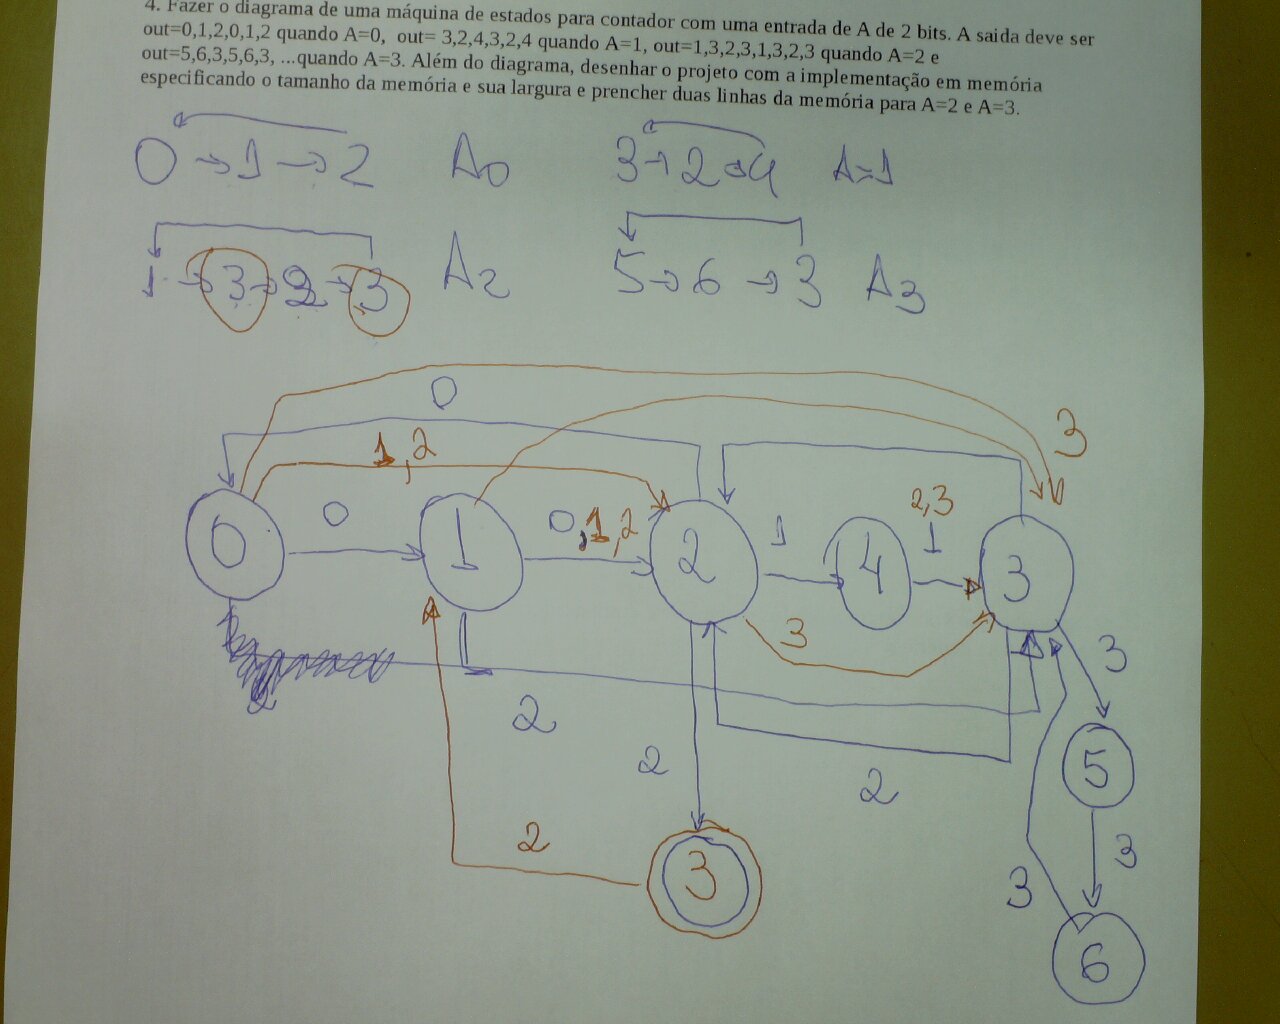 4. Fazer o diagrama de uma máquina de estados para contador com uma entrada de A de 2 bits. A saida deve ser
out=0,1,2,0,1,2 quando A=0, out= 3,2,4,3,2,4 quando A=1, out=1,3,2,3,1,3,2,3 quando A=2 e
out=5,6,3,5,6,3, ...quando A=3. Além do diagrama, desenhar o projeto com a implementação em memória
especificando o tamanho da memória e sua largura e prencher duas linhas da memória para A=2 e A=3.
0→1→2 A0 3→2→4 A=1
1→3→2→3 A2 5→6→3 A3
0
1,2 3
0 0,1,2 1 2,3
1
0 1 2 4 3
3 3
2
2 2 5
2 3 3
3
6